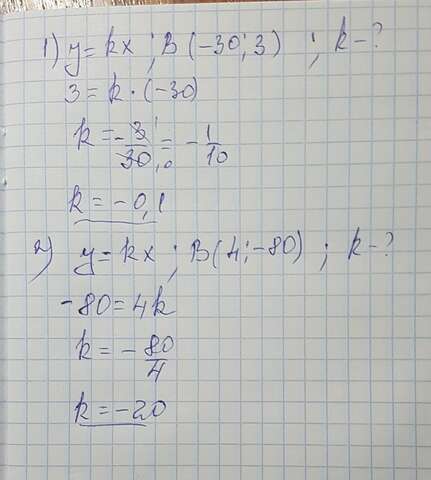 1) y = kx ; B (-30; 3) ; k - ?
3 = k · (-30)
k = - 3/30 = - 1/10
k = - 0,1
2) y = kx ; B (4; -80) ; k - ?
-80 = 4k
k = - 80/4
k = -20